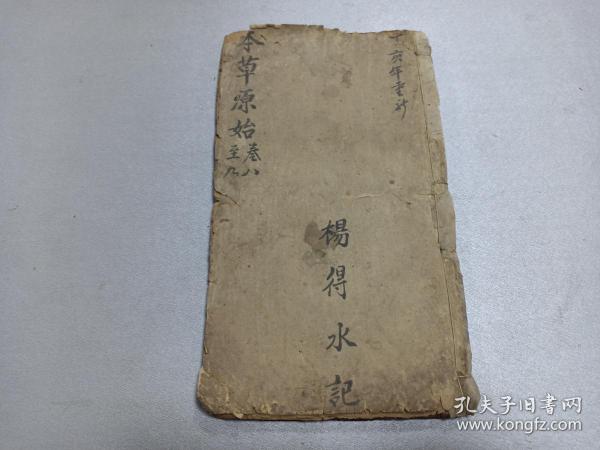 本草原始
卷八
至九
亥年重訂
楊得水記
孔夫子旧书网
www.kongfz.com